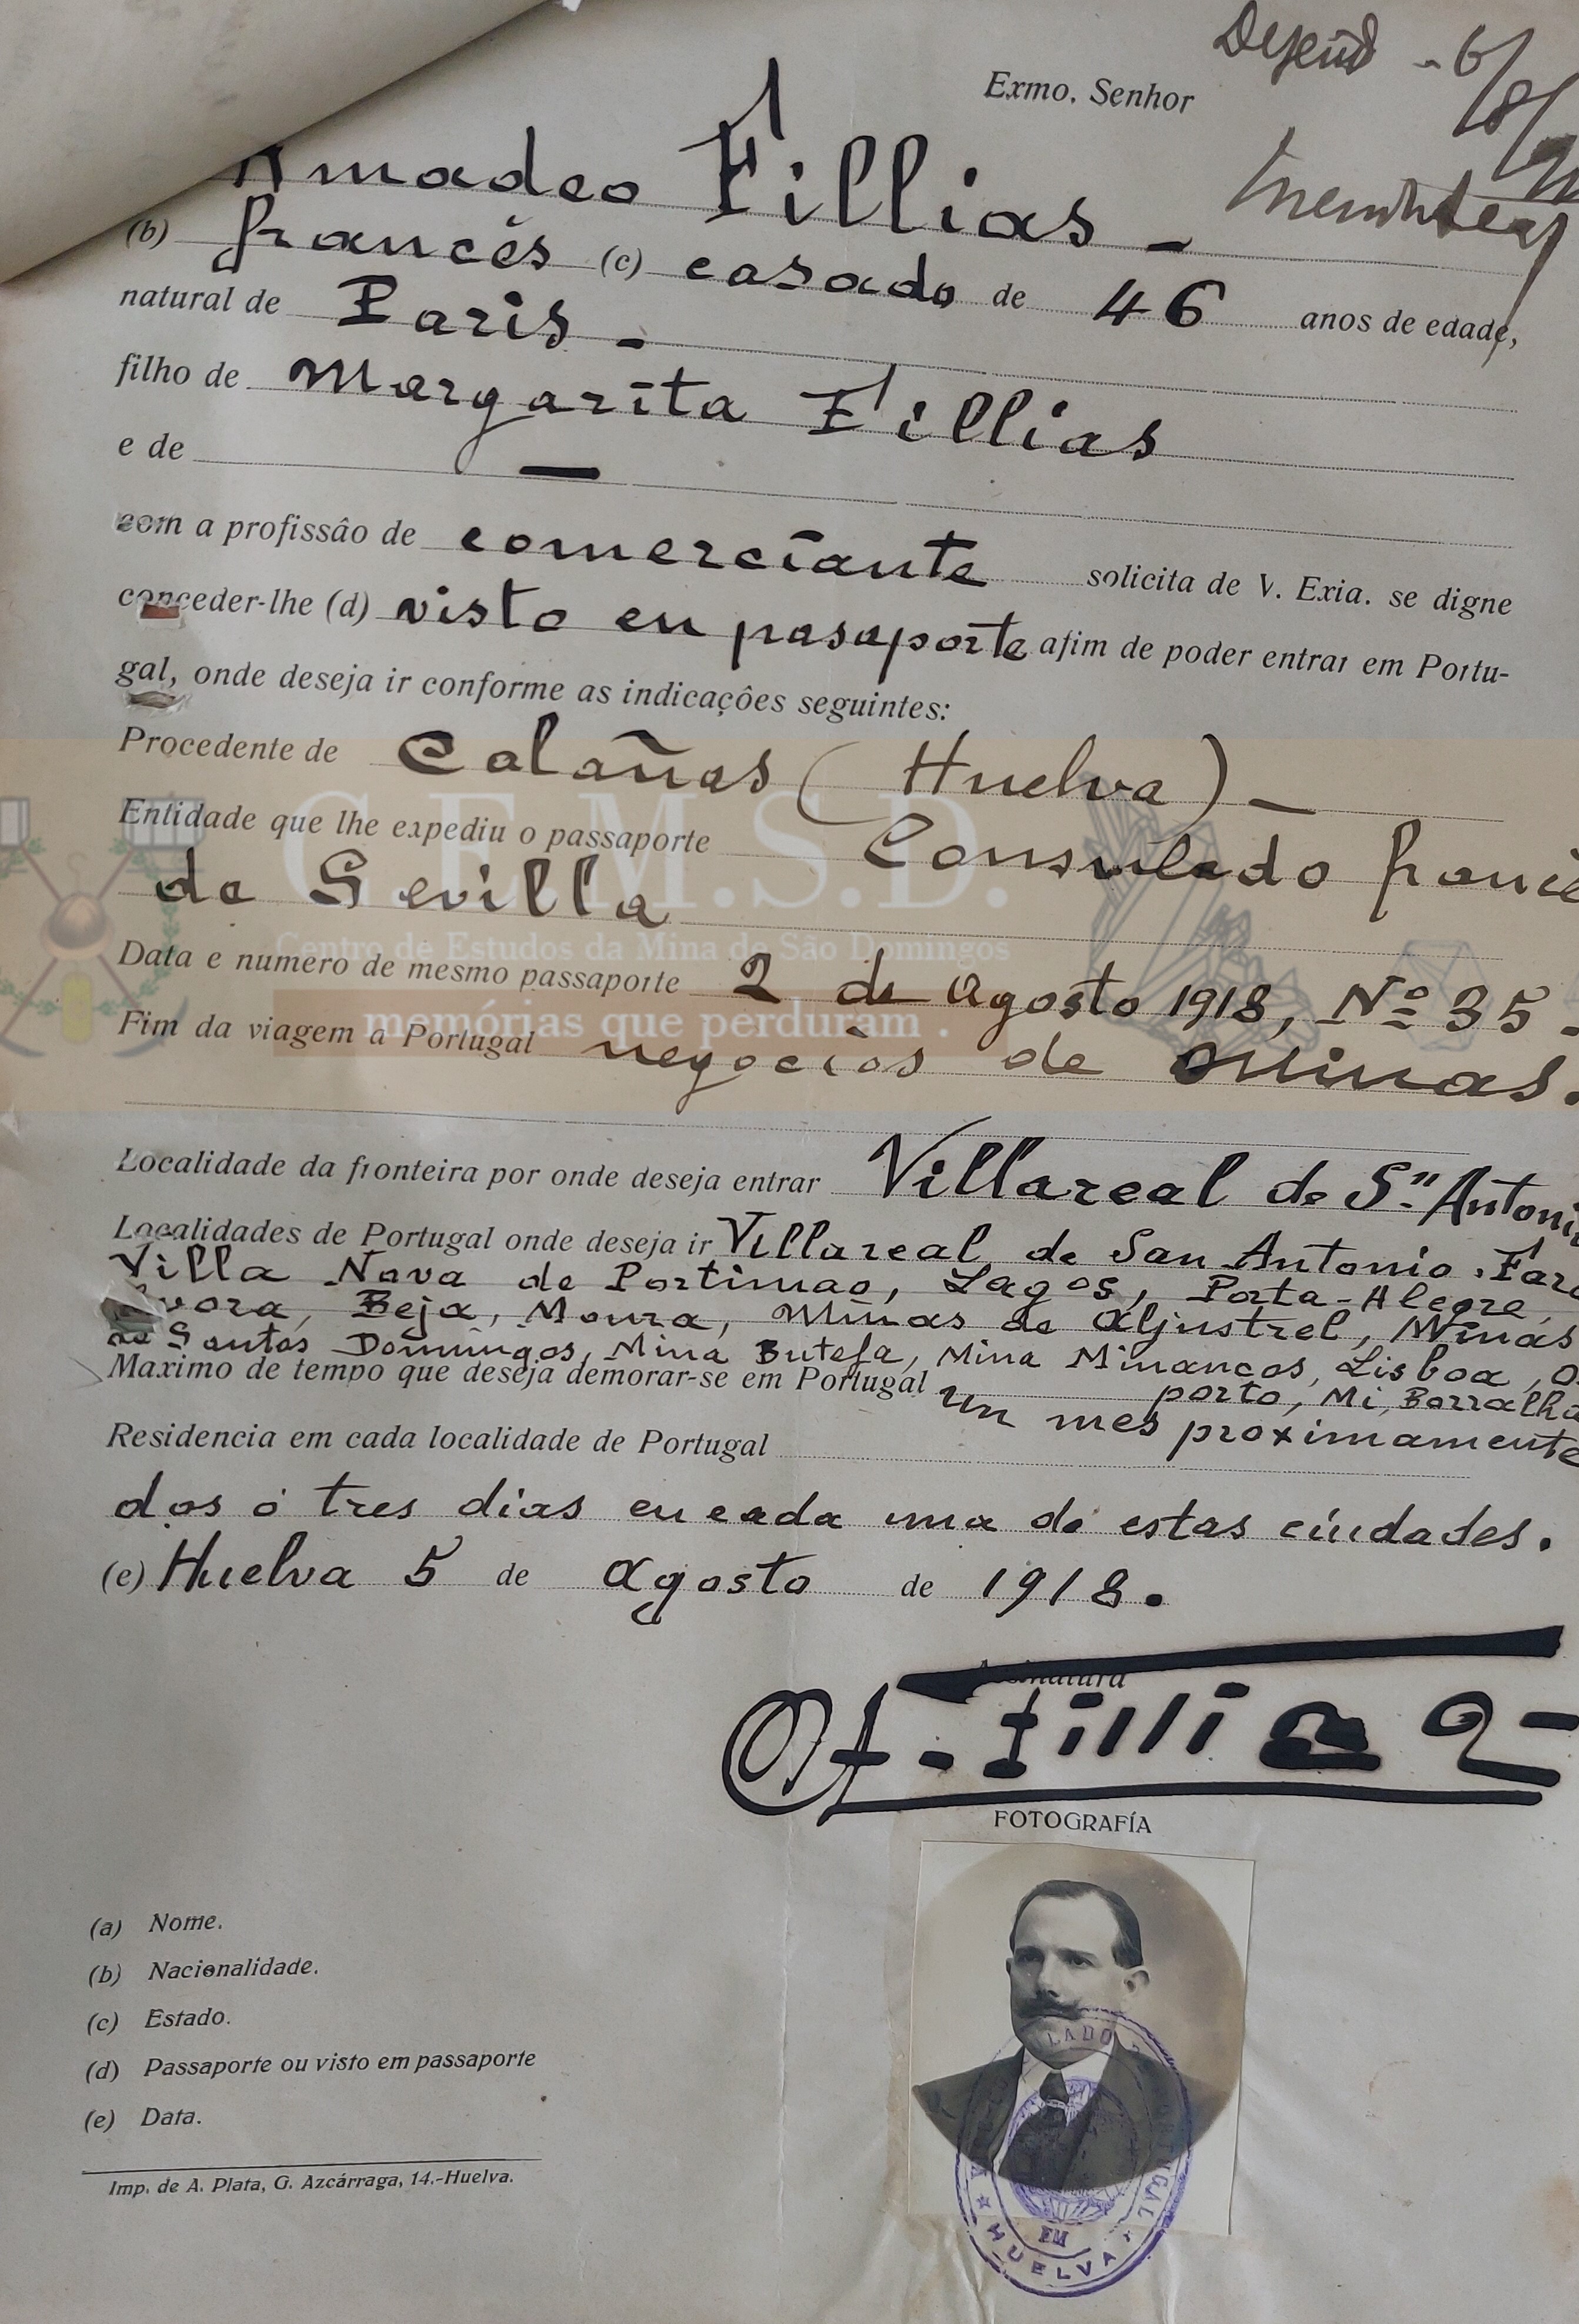 Exmo. Senhor
Amadeo Fillias -
(b) francés (c) casado de 46 anos de edade,
natural de Paris -
filho de Margarita Fillias
e de —
com a profissão de comerciante solicita de V. Exia. se digne
conceder-lhe (d) visto en pasaporte afim de poder entrar em Portu-
gal, onde deseja ir conforme as indicações seguintes:
Procedente de Calañas (Huelva) -
Entidade que lhe expediu o passaporte Consulado
de Sevilla
C.E.M.S.D.
Centro de Estudos da Mina de São Domingos
memórias que perduram .
Data e numero de mesmo passaporte 2 de Agosto 1918, Nº 35 -
Fim da viagem a Portugal negocios de Minas.
Localidade da fronteira por onde deseja entrar Villareal de Sn Antoni
Localidades de Portugal onde deseja ir Villareal de San Antonio, Faro
Villa Nova de Portimao, Lagos, Porta-Alegre,
Evora, Beja, Moura, Minas de Aljustrel, Minas
de Santos Domingos, Mina Butefa, Mina Minancos, Lisboa, O
porto, Mi, Borralha
Maximo de tempo que deseja demorar-se em Portugal un mes proximamente
Residencia em cada localidade de Portugal
dos ó tres dias en cada una de estas ciudades.
(e) Huelva 5 de Agosto de 1918.
Assinatura
A. Fillias
FOTOGRAFÍA
(a) Nome.
(b) Nacionalidade.
(c) Estado.
(d) Passaporte ou visto em passaporte
(e) Data.
Imp. de A. Plata, G. Azcárraga, 14.-Huelva.
EM
HUELVA